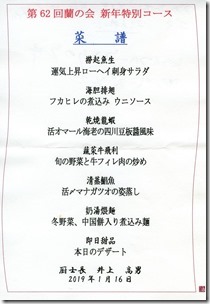 第62回蘭の会 新年特別コース
菜 譜
撈起魚生
運気上昇ローヘイ刺身サラダ
海胆排翅
フカヒレの煮込み ウニソース
乾焼龍蝦
活オマール海老の四川豆板醤風味
蔬菜牛飛利
旬の野菜と牛フィレ肉の炒め
清蒸鯧魚
活〆マナガツオの姿蒸し
奶湯煨麺
冬野菜、中国餅入り煮込み麺
即日甜品
本日のデザート
厨士長 井上 高男
2019年1月16日